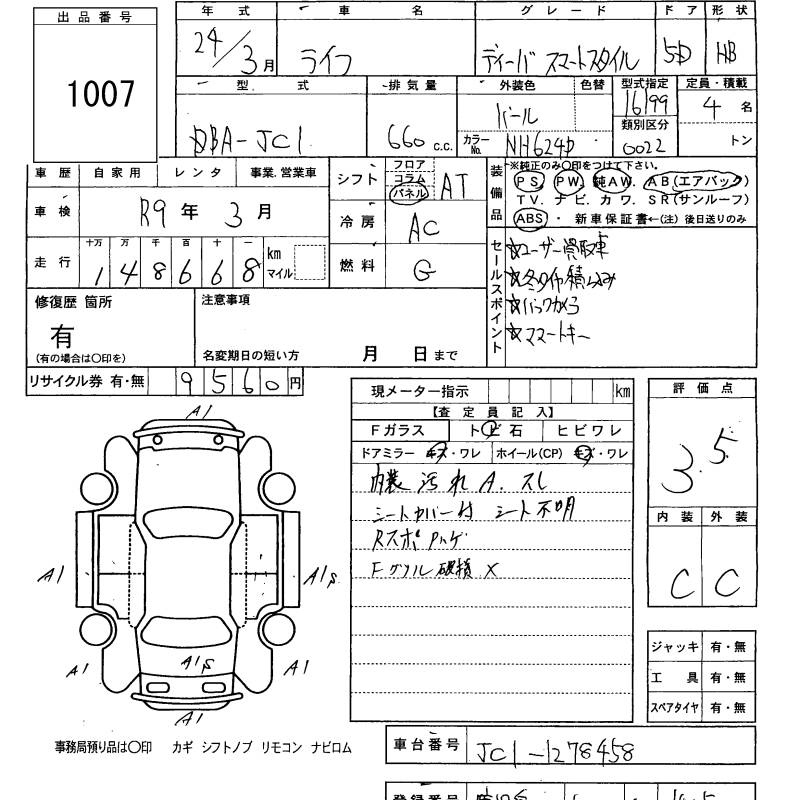 出品番号
1007
年式 車名 グレード ドア 形状
24/3月 ライフ ディーバ スマートスタイル 5D HB
型式 排気量 外装色 色替 型式指定 定員・積載
DBA-JC1 660 c.c. パール 16199 4名
カラーNo. NH624P 類別区分 0022 トン
車歴 自家用 レンタ 事業.営業車
車検 R9年 3月
走行 十万 万 千 百 十 一
148668 km マイル
シフト フロア コラム パネル AT
冷房 AC
燃料 G
装備品 ※純正のみ〇印をつけて下さい。
PS. PW. 純AW. AB(エアバック)
TV. ナビ. カワ. SR(サンルーフ)
ABS ・ 新車保証書←(注) 後日送りのみ
セールスポイント
☆ユーザー買取車
☆冬タイヤ積込み
☆バックカメラ
☆スマートキー
修復歴 箇所
有
(有の場合は〇印を)
注意事項
名変期日の短い方 月 日まで
リサイクル券 有・無 9560円
現メーター指示 km
【査定員記入】
Fガラス トビ石 ヒビワレ
ドアミラー キズ・ワレ ホイール(CP) キズ・ワレ
内装 汚れ A. スレ
シートカバー付 シート不明
Rスポ
Fグリル 破損 X
評価点
3.5
内装 外装
C C
ジャッキ 有・無
工具 有・無
スペアタイヤ 有・無
A1
A1
A1s
A1
A1s
A1
A1
事務局預り品は〇印 カギ シフトノブ リモコン ナビロム
車台番号 JC1-1278458
登録番号